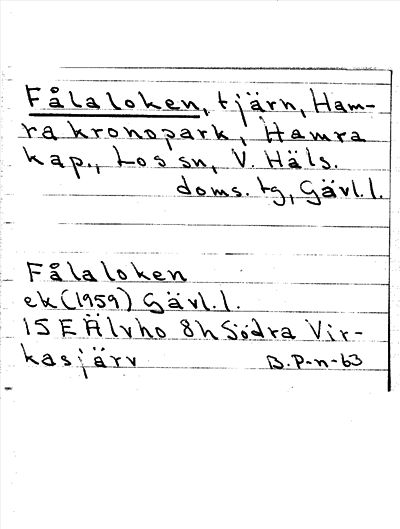 Fålaloken, tjärn, Ham-
ra kronopark, Hamra
kap., Los sn, V. Häls.
doms. tg, Gävl.l.
Fålaloken
ek (1959) Gävl.l.
15 E Älvho 8h Södra Vir-
kasjärv B.P-n-63